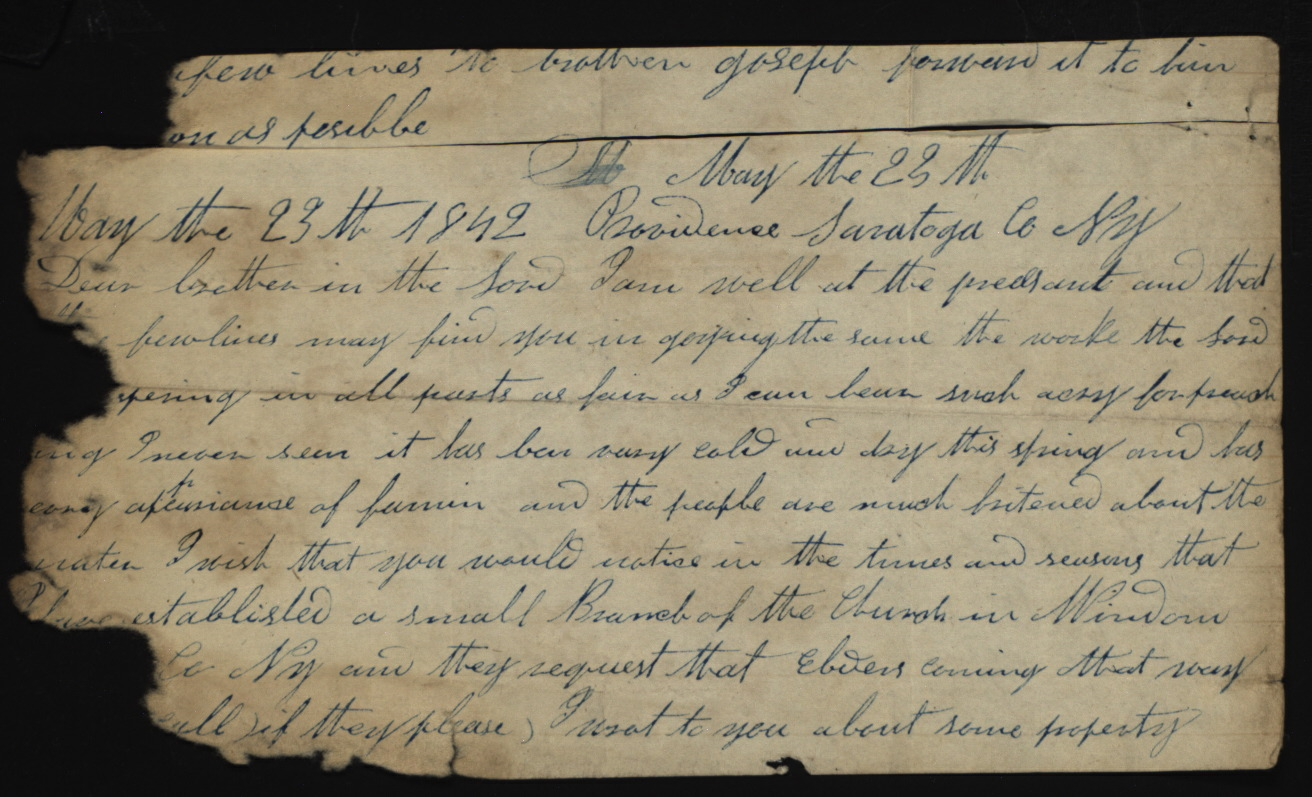 afew lines to brother Joseph forward it to him
on as posibbe
May the 23 th
May the 23 th 1842 Providence Saratoga Co NY
Dear brother in the Lord I am well at the preasant and that
fewlines may find you in goying the same the worke the Lord
spering in all parts as fair as I can hear such acry for preach
ing I never seen it has ben vary cold and dry this spring and has
eavry apearance of famin and the people are much fritened about the
mater I wish that you would notice in the times and seasons that
I have establisled a small Branch of the Church in Windom
Co NY and they request that Elders coming that way
call ) if they please ) I wrot to you about some property